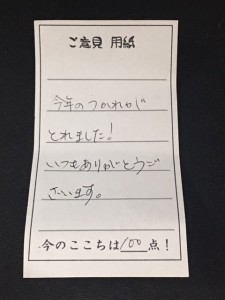 ご意見 用紙
今年のつかれが
とれました!
いつもありがとうご
ざいます。
今のここちは100点!